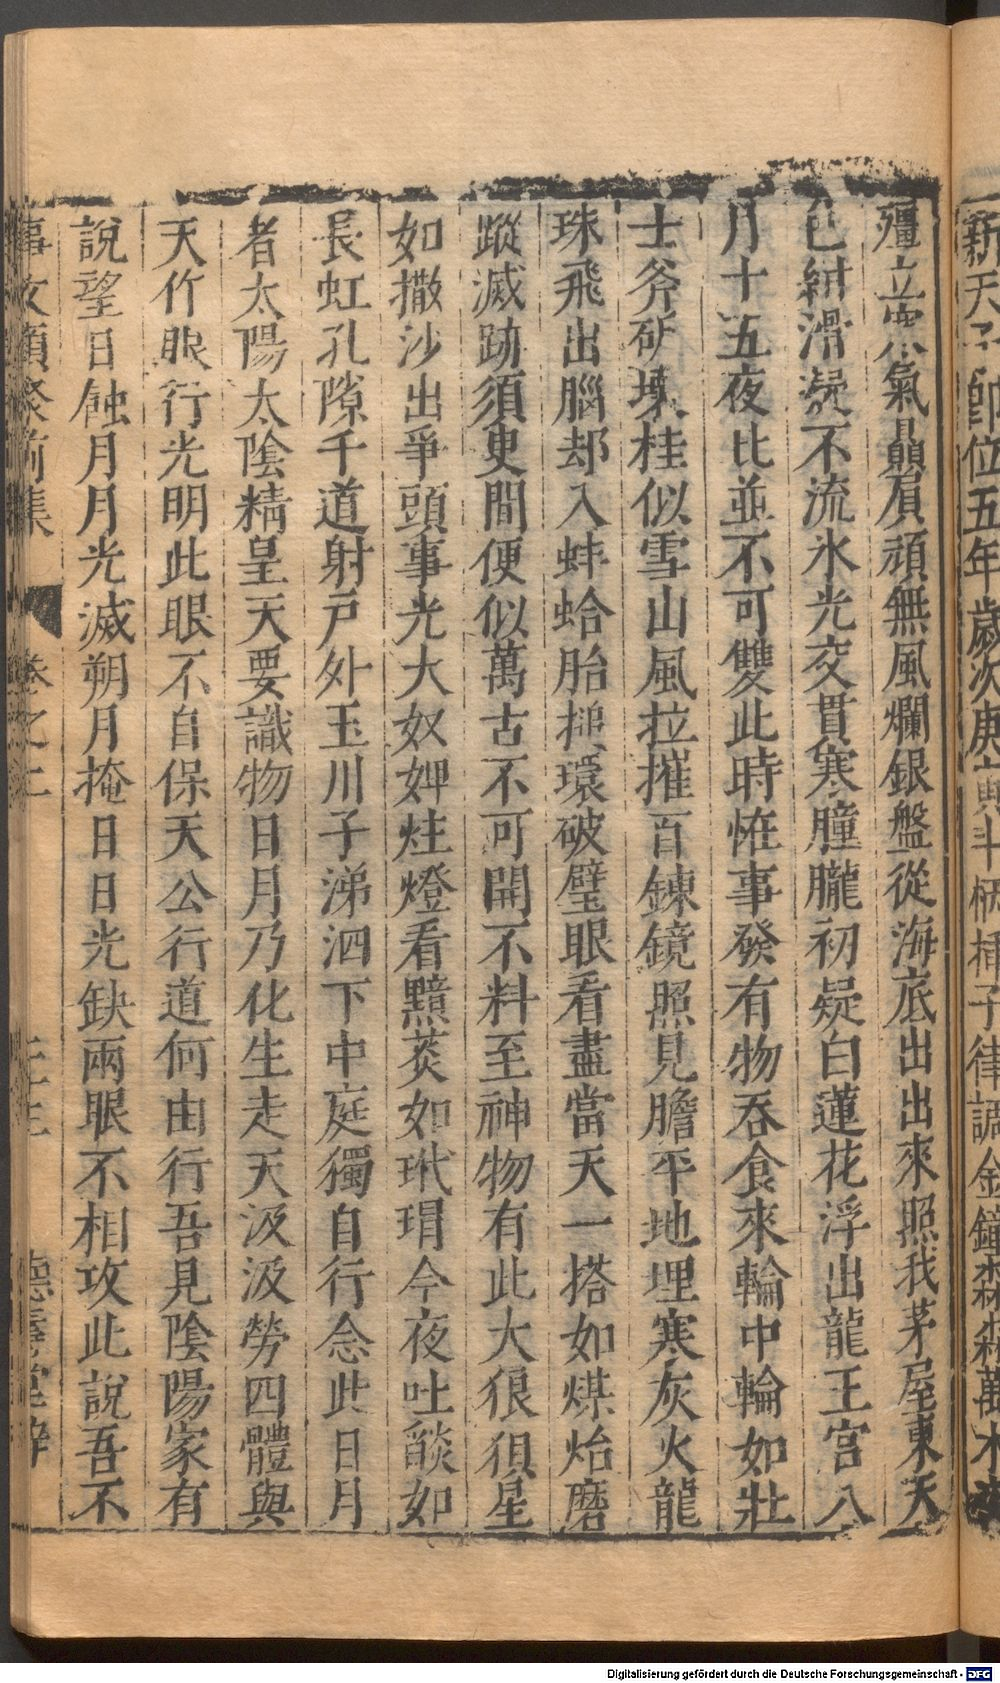 新天子即位五年歲次庚寅斗柄插子律調金鐘森森萬木
殭立寒氣贔屓頑無風爛銀盤從海底出出來照我茅屋東天
色紺滑凝不流氷光交貫寒朣朧初疑白蓮花浮出龍王宮八
月十五夜比並不可雙此時恠事發有物吞食來輪中輪如壯
士斧斫壞桂似雪山風拉摧百鍊鏡照見膽平地埋寒灰火龍
珠飛出腦却入蚌蛤胎摧環破璧眼看盡當天一搭如煤炲磨
蹤滅跡須臾間便似萬古不可開不料至神物有此大狼狽星
如撒沙出爭頭事光大奴婢炷燈看黮菼如玳瑁今夜吐燄如
長虹孔隙千道射戸外玉川子涕泗下中庭獨自行念此日月
者太陽太陰精皇天要識物日月乃化生走天汲汲勞四體與
天作眼行光明此眼不自保天公行道何由行吾見陰陽家有
說望日蝕月月光滅朔月掩日日光缺兩眼不相攻此說吾不
事文類聚前集 卷之二 德壽堂梓
Digitalisierung gefördert durch die Deutsche Forschungsgemeinschaft - DFG